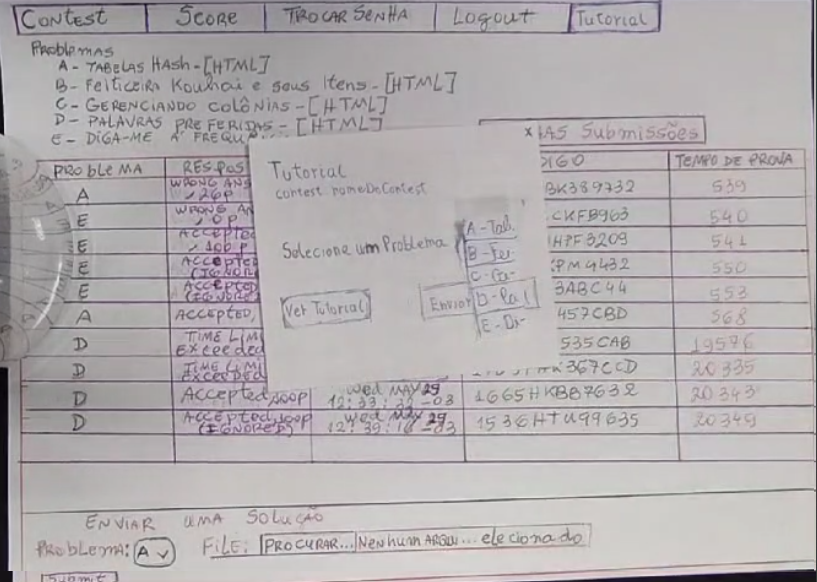 CONTEST SCORE TROCAR SENHA Logout Tutorial
PROblemAS
A- TABELAS HAsh-[HTML]
B- Feiticeiro Kouhai e seus Itens-[HTML]
C- GERENCIANDO colônias-[HTML]
D- PALAVRAS PREFERIDAS-[HTML]
E- DIGA-ME A FREQU
HAS Submissões
PROblEMA RESPOS DIGO TEMPO DE PROVA
A WRONG ANS BK389732 539
E WRONG AN CKFB963 540
, 0 P
E Accepted HPF3209 541
, 100 P
E Accepted 550
(IGNOR
E Accepted 3ABC44 553
(IGNOR
A ACCEPTED, 457CBD 568
D TIME LIMI 535CAB 19576
Exceeded
D TIME LIMI 367CCD 20335
ExceeDed
D Accepted,100p Wed MAY 29 1665HKBB7632 20343
12:33:32-03
D Accepted,100p Wed May 29 1536HTU99635 20349
(IGNORED) 12:39:16-03
x
Tutorial
contest nomeDoContest
Selecione um Problema
A-Tab.
B-Fei-
C-Ge-
D-Pal
E-Di-
Ver Tutorial Enviar
ENVIAR UMA SOLUÇÃO
PROblEMA: A FILE: PROCURAR... Nenhum ARQU...elecionado
Submit